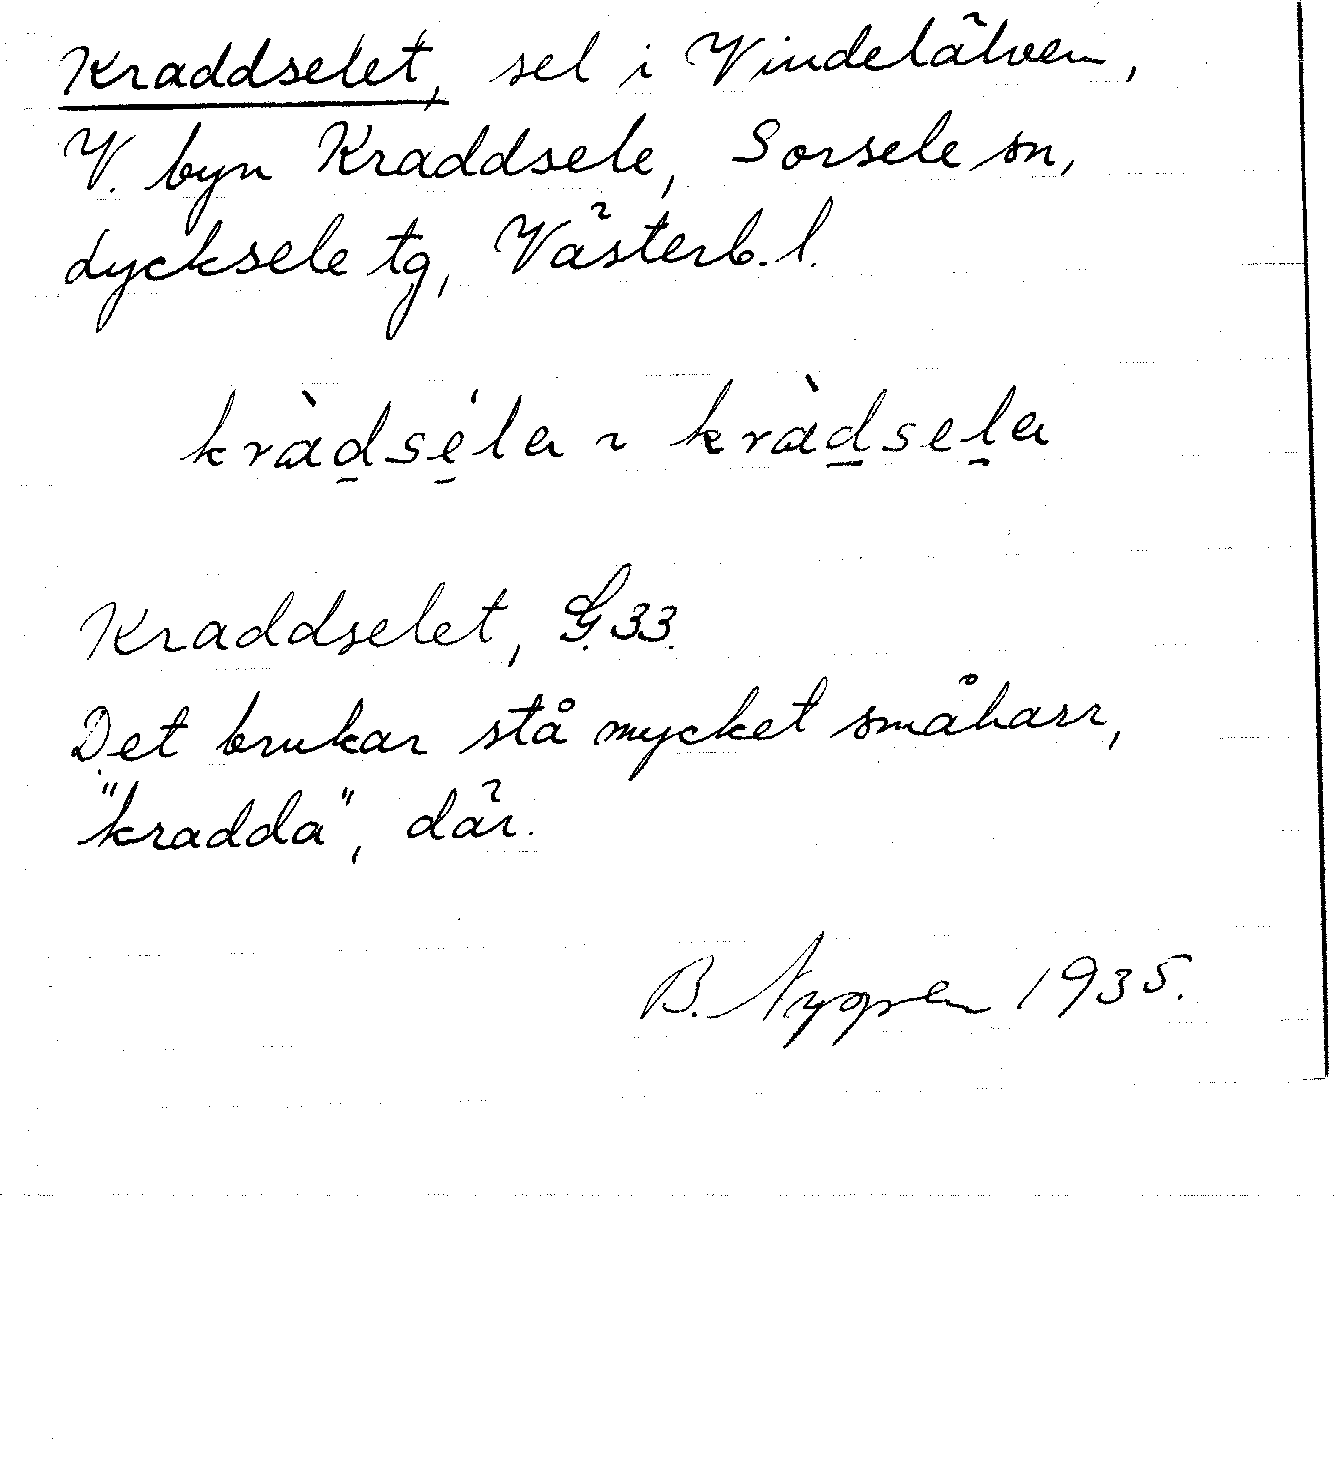 Kraddselet, sel i Vindelälven,
V. byn Kraddsele, Sorsele sn,
Lycksele tg, Västerb. l.
kràd̲se̲̍la ~ kràd̲sel̲a
Kraddselet, G. 33.
Det brukar stå mycket småharr,
"kradda", där.
B. Nygren 1935.